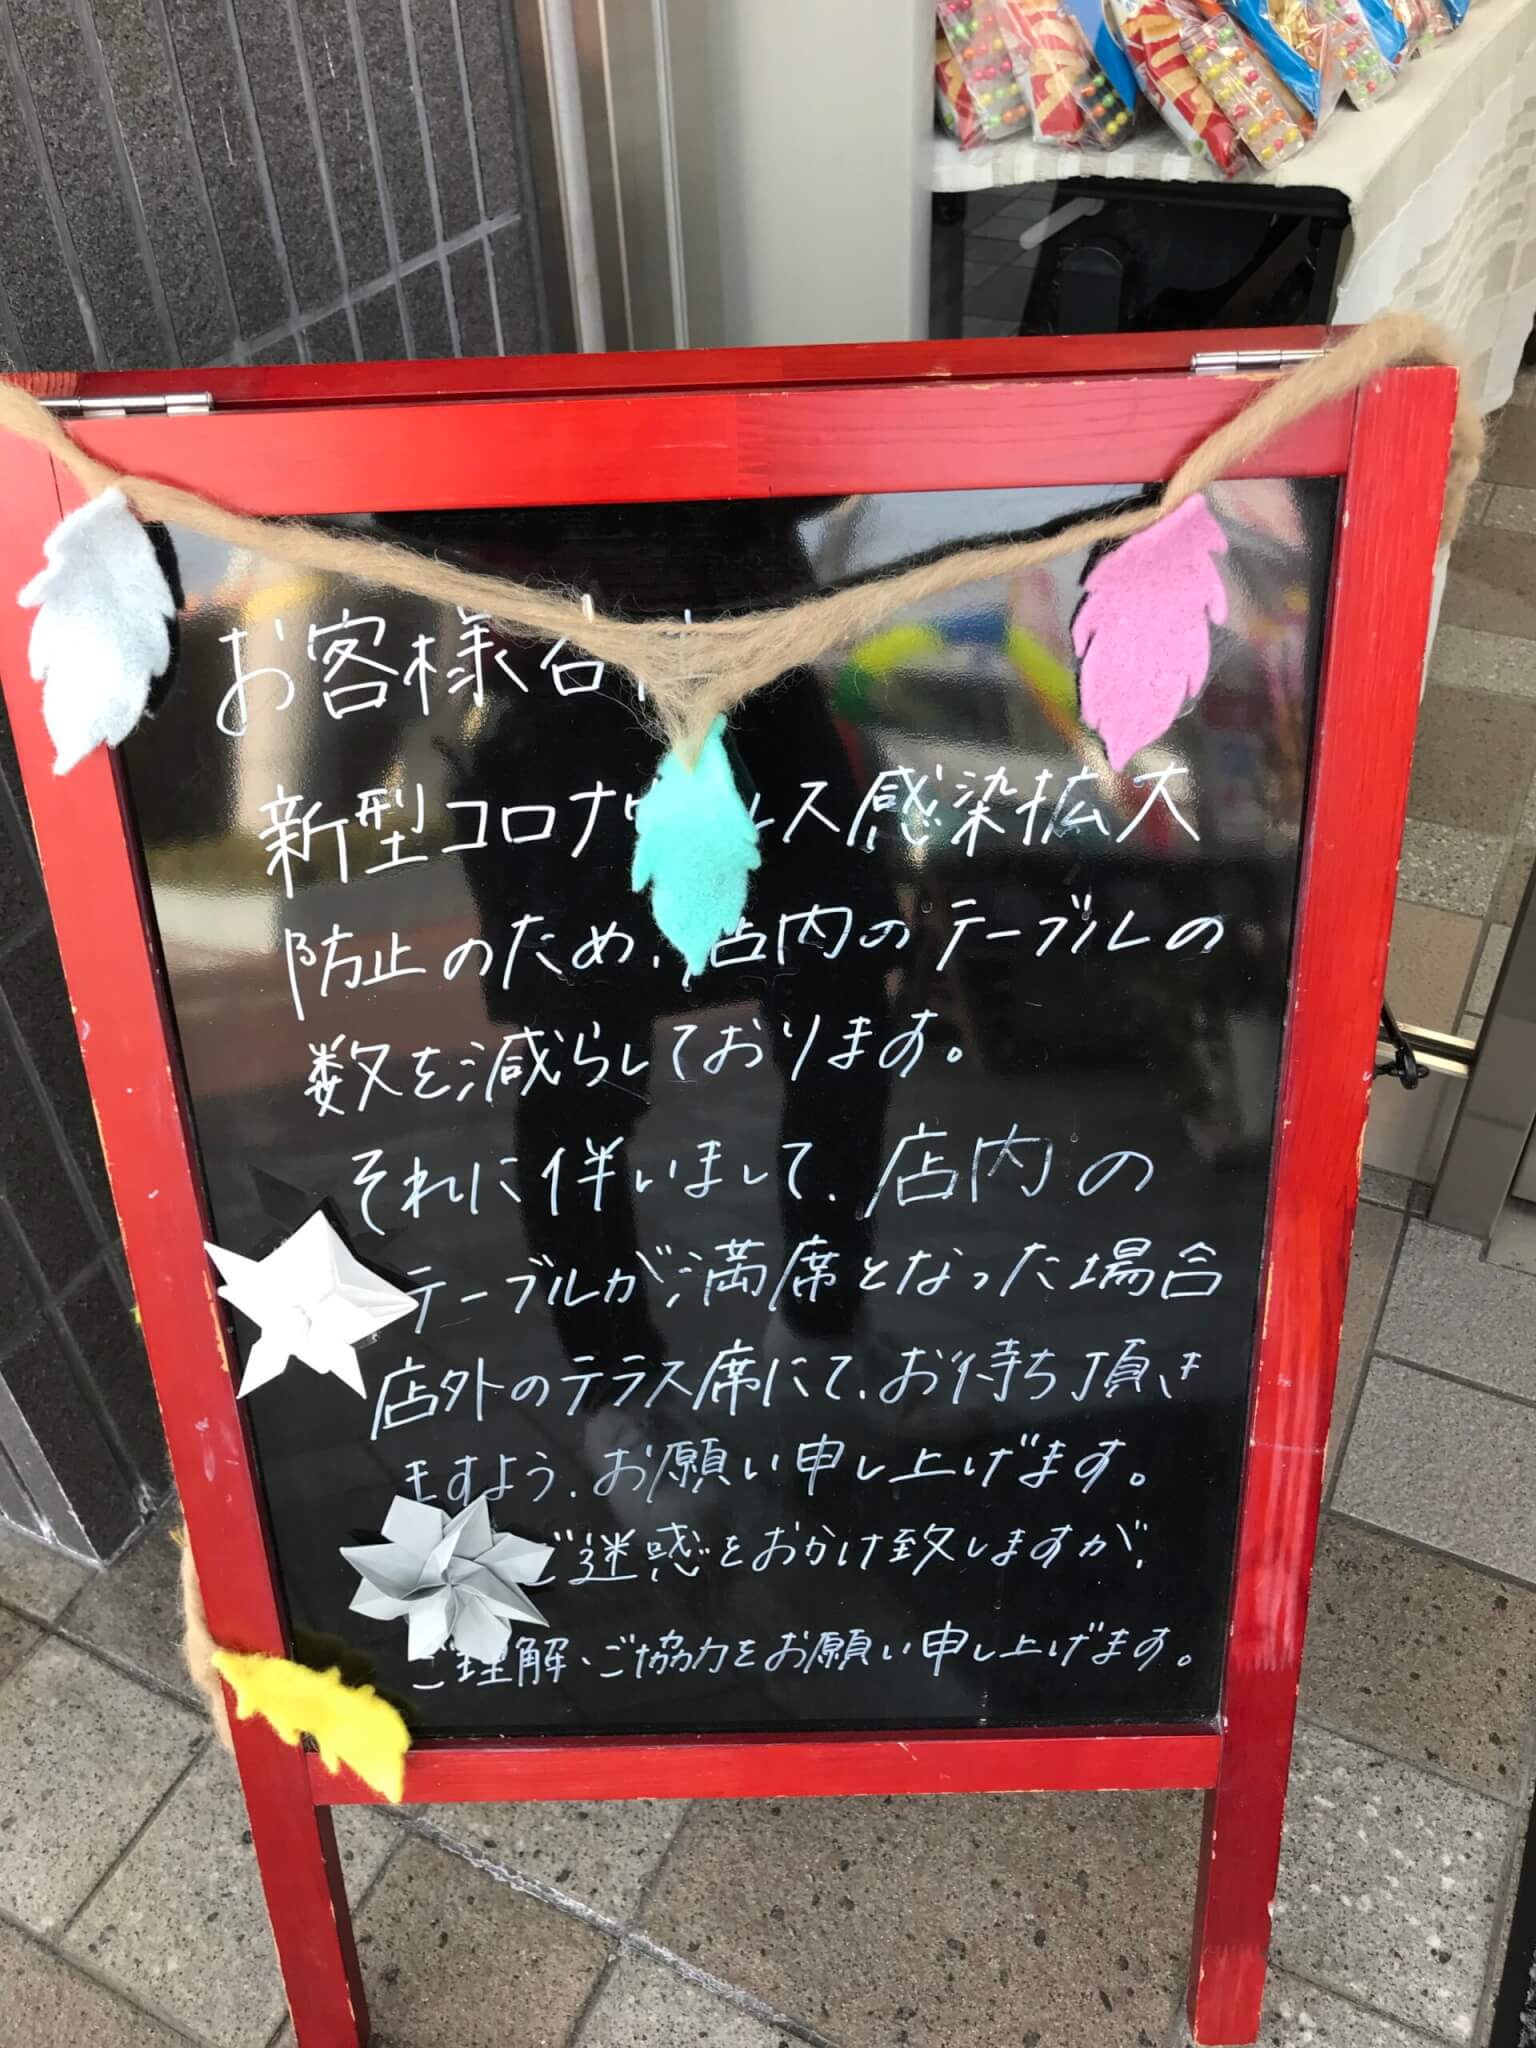 お客様各位
新型コロナウイルス感染拡大
防止のため、店内のテーブルの
数を減らしております。
それに伴いまして、店内の
テーブルが満席となった場合
店外のテラス席にて、お待ち頂き
ますよう、お願い申し上げます。
ご迷惑をおかけ致しますが、
ご理解・ご協力をお願い申し上げます。